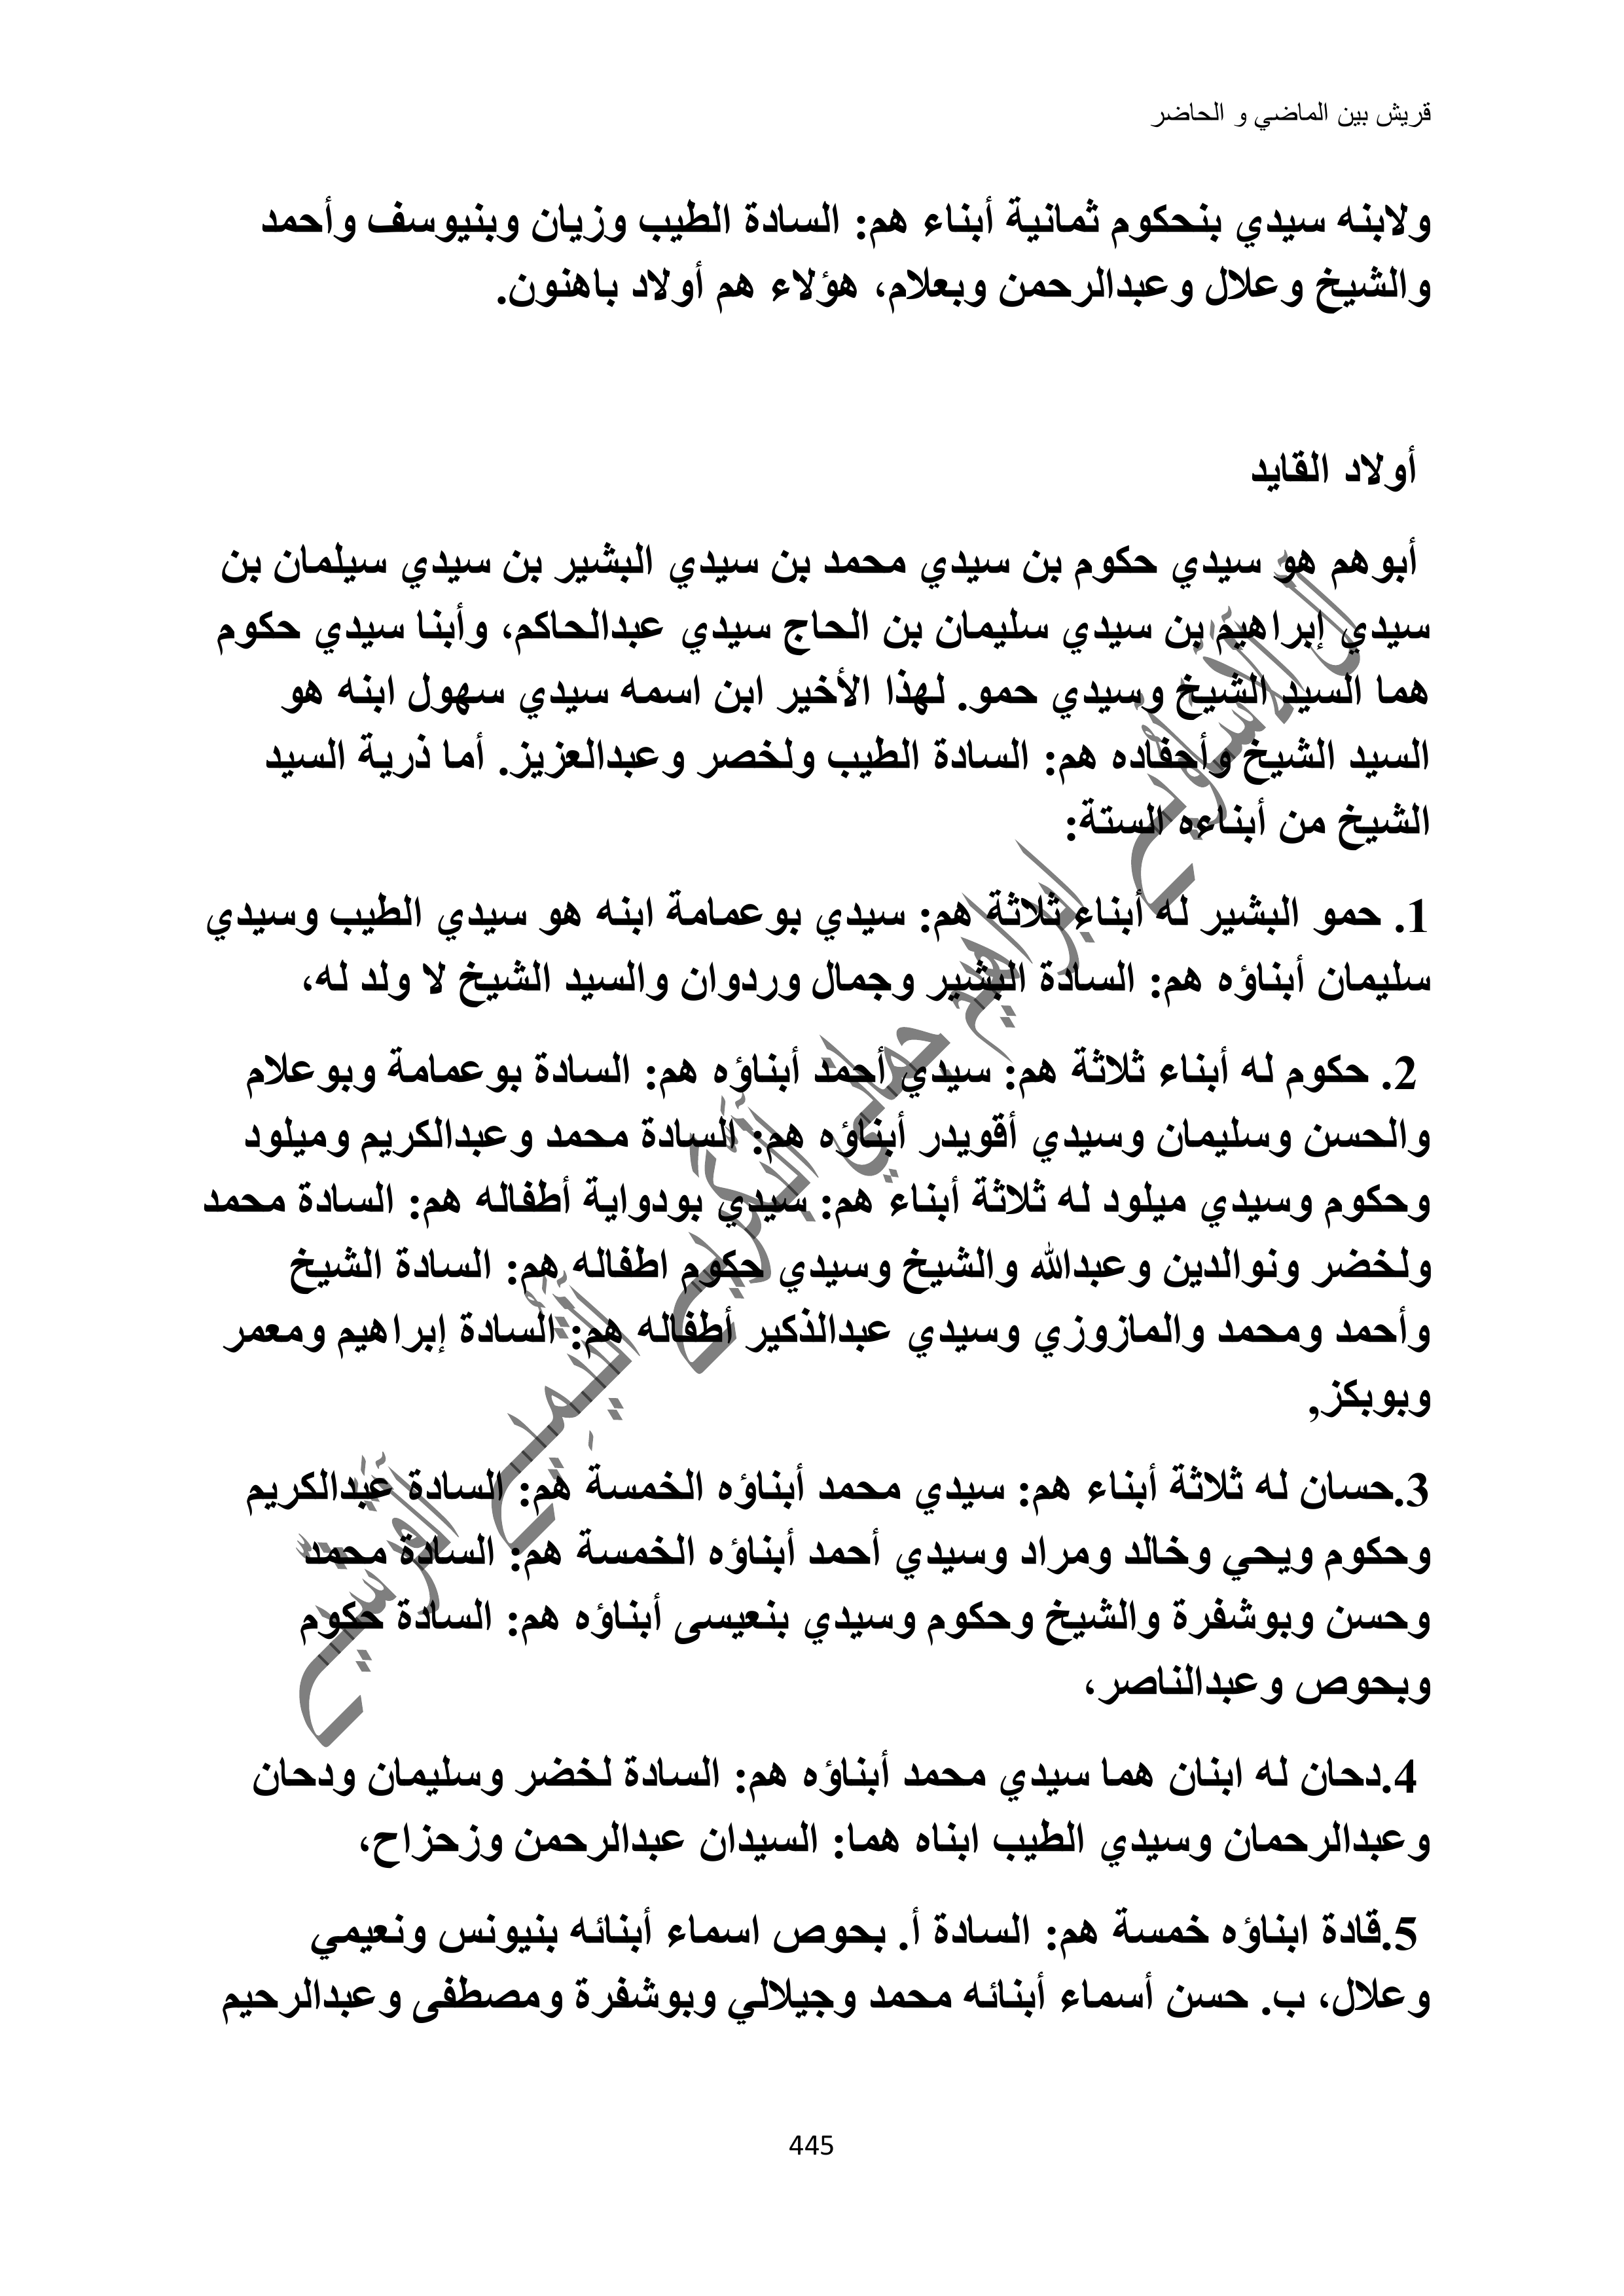 قريش بين الماضي و الحاضر
ولابنه سيدي بنحكوم ثمانية أبناء هم: السادة الطيب وزيان وبنيوسف وأحمد
والشيخ وعلال وعبدالرحمن وبعلام، هؤلاء هم أولاد باهنون.
أولاد القايد
أبوهم هو سيدي حكوم بن سيدي محمد بن سيدي البشير بن سيدي سيلمان بن
سيدي إبراهيم بن سيدي سليمان بن الحاج سيدي عبدالحاكم، وأبنا سيدي حكوم
هما السيد الشيخ وسيدي حمو. لهذا الأخير ابن اسمه سيدي سهول ابنه هو
السيد الشيخ وأحفاده هم: السادة الطيب ولخصر وعبدالعزيز. أما ذرية السيد
الشيخ من أبناءه الستة:
1. حمو البشير له أبناء ثلاثة هم: سيدي بوعمامة ابنه هو سيدي الطيب وسيدي
سليمان أبناؤه هم: السادة البشير وجمال وردوان والسيد الشيخ لا ولد له،
2. حكوم له أبناء ثلاثة هم: سيدي أحمد أبناؤه هم: السادة بوعمامة وبوعلام
والحسن وسليمان وسيدي أقويدر أبناؤه هم: السادة محمد وعبدالكريم وميلود
وحكوم وسيدي ميلود له ثلاثة أبناء هم: سيدي بودواية أطفاله هم: السادة محمد
ولخضر ونوالدين وعبدالله والشيخ وسيدي حكوم اطفاله هم: السادة الشيخ
وأحمد ومحمد والمازوزي وسيدي عبدالذكير أطفاله هم: السادة إبراهيم ومعمر
وبوبكز,
3.حسان له ثلاثة أبناء هم: سيدي محمد أبناؤه الخمسة هم: السادة عبدالكريم
وحكوم ويحي وخالد ومراد وسيدي أحمد أبناؤه الخمسة هم: السادة محمد
وحسن وبوشفرة والشيخ وحكوم وسيدي بنعيسى أبناؤه هم: السادة حكوم
وبحوص وعبدالناصر،
4.دحان له ابنان هما سيدي محمد أبناؤه هم: السادة لخضر وسليمان ودحان
وعبدالرحمان وسيدي الطيب ابناه هما: السيدان عبدالرحمن وزحزاح،
5.قادة ابناؤه خمسة هم: السادة أ. بحوص اسماء أبنائه بنيونس ونعيمي
وعلال، ب. حسن أسماء أبنائه محمد وجيلالي وبوشفرة ومصطفى وعبدالرحيم
445